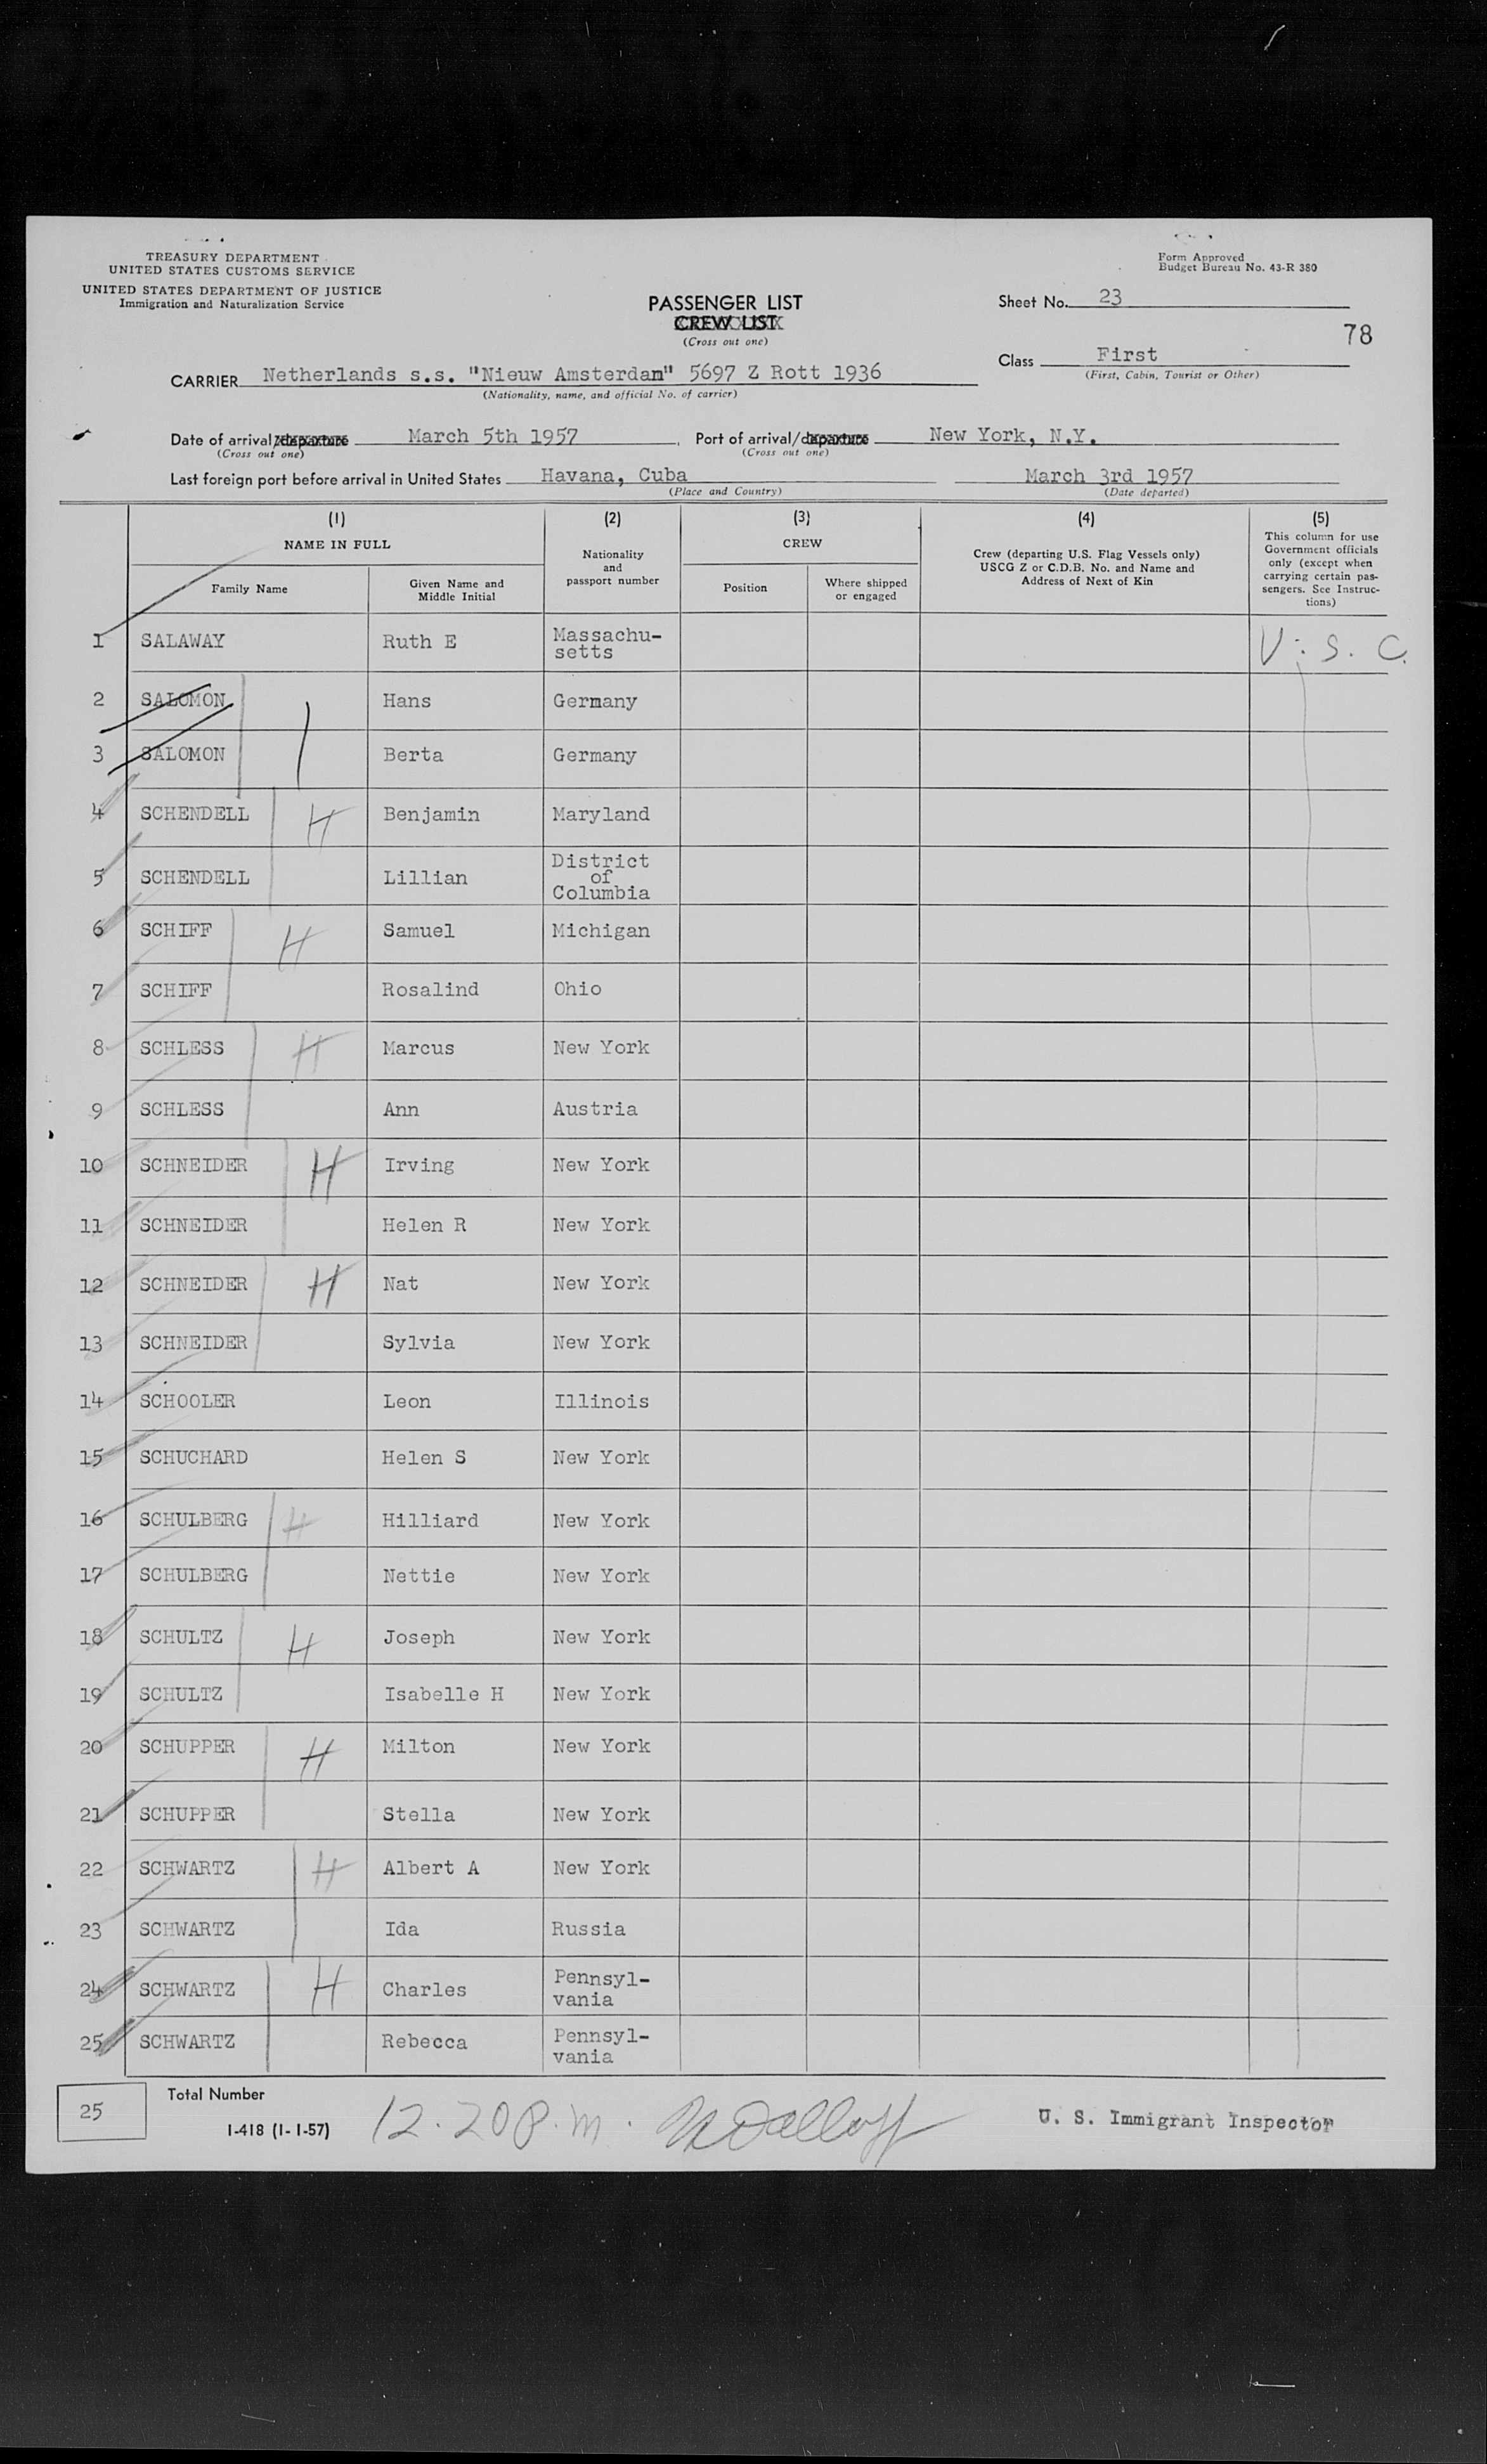 TREASURY DEPARTMENT
UNITED STATES CUSTOMS SERVICE
UNITED STATES DEPARTMENT OF JUSTICE
Immigration and Naturalization Service
Form Approved
Budget Bureau No. 43-R 380
PASSENGER LIST
CREW LIST
(Cross out one)
Sheet No. 23
78
Class First
(First, Cabin, Tourist or Other)
CARRIER Netherlands s.s. "Nieuw Amsterdam" 5697 Z Rott 1936
(Nationality, name, and official No. of carrier)
Date of arrival/departure March 5th 1957, Port of arrival/departure New York, N.Y.
(Cross out one) (Cross out one)
Last foreign port before arrival in United States Havana, Cuba March 3rd 1957
(Place and Country) (Date departed)
(1) (2) (3) (4) (5)
NAME IN FULL
Family Name
Given Name and
Middle Initial
Nationality
and
passport number
CREW
Position
Where shipped
or engaged
Crew (departing U.S. Flag Vessels only)
USCG Z or C.D.B. No. and Name and
Address of Next of Kin
This column for use
Government officials
only (except when
carrying certain pas-
sengers. See Instruc-
tions)
1 SALAWAY Ruth E Massachu-
setts U.S.C.
2 SALOMON Hans Germany
3 SALOMON Berta Germany
4 SCHENDELL H Benjamin Maryland
5 SCHENDELL Lillian District
of
Columbia
6 SCHIFF H Samuel Michigan
7 SCHIFF Rosalind Ohio
8 SCHLESS H Marcus New York
9 SCHLESS Ann Austria
10 SCHNEIDER H Irving New York
11 SCHNEIDER Helen R New York
12 SCHNEIDER H Nat New York
13 SCHNEIDER Sylvia New York
14 SCHOOLER Leon Illinois
15 SCHUCHARD Helen S New York
16 SCHULBERG H Hilliard New York
17 SCHULBERG Nettie New York
18 SCHULTZ H Joseph New York
19 SCHULTZ Isabelle H New York
20 SCHUPPER H Milton New York
21 SCHUPPER Stella New York
22 SCHWARTZ H Albert A New York
23 SCHWARTZ Ida Russia
24 SCHWARTZ H Charles Pennsyl-
vania
25 SCHWARTZ Rebecca Pennsyl-
vania
25 Total Number
I-418 (1-1-57) 12.20 P.m. U. S. Immigrant Inspector